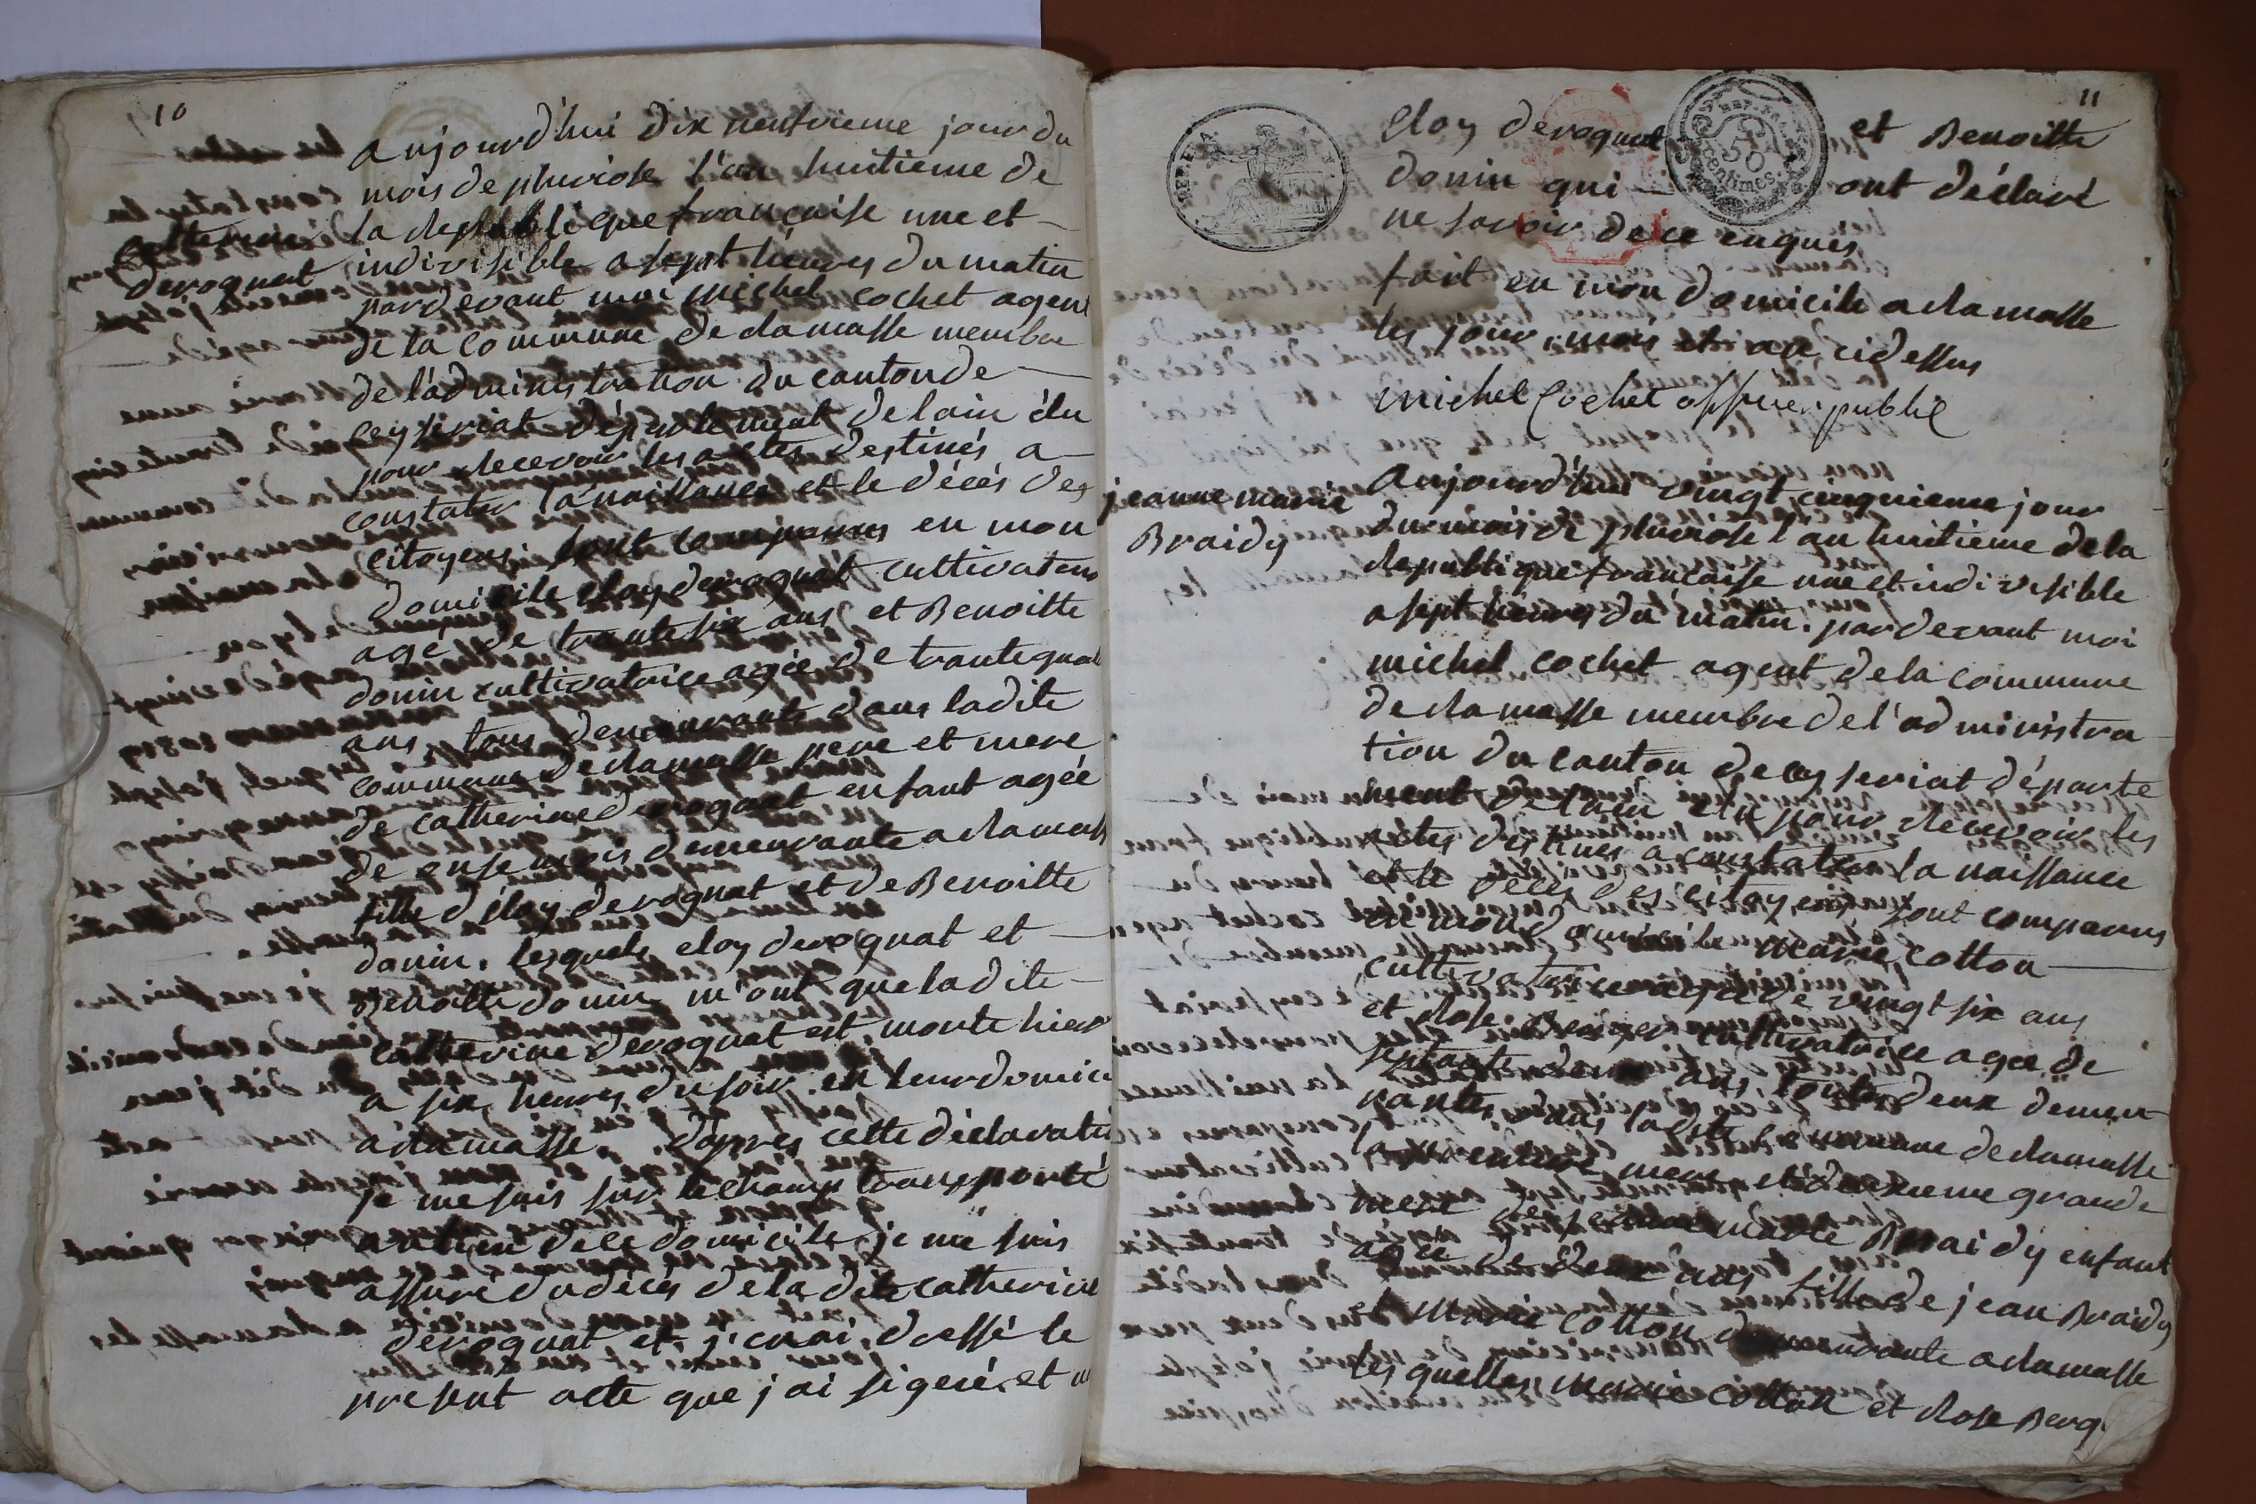 10
aujourd'hui dix neufvieme jour du
mois de pluviose l'an huitieme de
la republique française une et
indivisible a sept heures du matin
pardevant moi michel cochet agent
de la commune de ramasse membre
de l'administration du canton de
ceyseriat département de lain élu
pour recevoir les actes destinés a
constater la naissance et le décés des
citoyens. sont comparus en mon
domicile eloy deroquat cultivateur
agé de trante six ans et Benoitte
donin cultivatrice agée de trante quat
ans, tous demeurants dans ladite
commune de ramasse pere et mere
de catherine deroquat enfant agée
de onse mois demeurante a ramass
fille d'éloy deroquat et de Benoitte
donin. lesquels eloy deroquat et
Benoitte donin m'ont que ladite
catherine deroquat est morte hier
a six heures du soir en leur domici
a ramasse. d'apres cette déclaratio
je me suis sur le champ transporté
au lieu de ce domicile, je me suis
assuré du décés de la dite catherine
deroquat et j'en ai dressé le
present acte que j'ai signé. et n
catherine
deroquat
11
eloy deroquat et Benoitte
donin qui ont déclaré
ne savoir de ce enquis
fait en mon domicile a ramasse
les jour, mois et an cidessus
michel Cochet officier public
REP. FRA.
50
centimes.
jeanne marie
Braidy
aujourd'hui vingt cinquieme jour
du mois de pluviose l'an huitieme de la
republique française une et indivisible
a sept heures du matin. pardevant moi
michel cochet agent de la commune
de ramasse membre de l'administra
tion du canton de ceyseriat départe
ment de lain élu pour recevoir les
actes destinés a constater la naissance
et le décés des citoyens, sont comparus
en mon domicile marie cotton
cultivatrice agée de vingt six ans
et Rose Berger cultivatrice agée de
septante deux ans, toutes deux demeu
rantes dans ladite commune de ramasse
la premiere mere et la deuxieme grande
mere de jeanne marie Braidy enfant
agée de deux ans fille de jean Braidy
et marie cotton demeurante a ramasse
les quelles marie cotton et Rose Berg